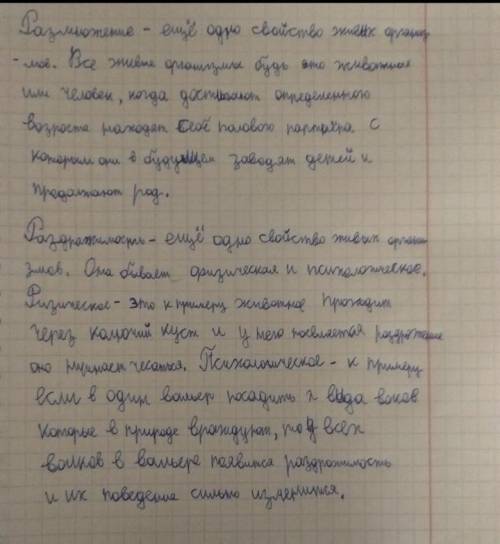 Размножение - ещё одно свойство живых организ
-мов. Все живые организмы будь это животное
или человек, когда достигают определенного
возраста находят себе полового партнёра. С
которым они в будущем заводят детей и
продолжают род.
Раздражимость - ещё одно свойство живых органи
змов. Она бывает физическая и психологическое.
Физическое - это к примеру животное проходит
через колючий куст и у него появляется раздражение
оно начинает чесаться. Психологическое - к примеру
если в один вальер посадить 2 вида волков
которые в природе враждуют, то у всех
волков в вальере появится раздражимость
и их поведение сильно изменится.